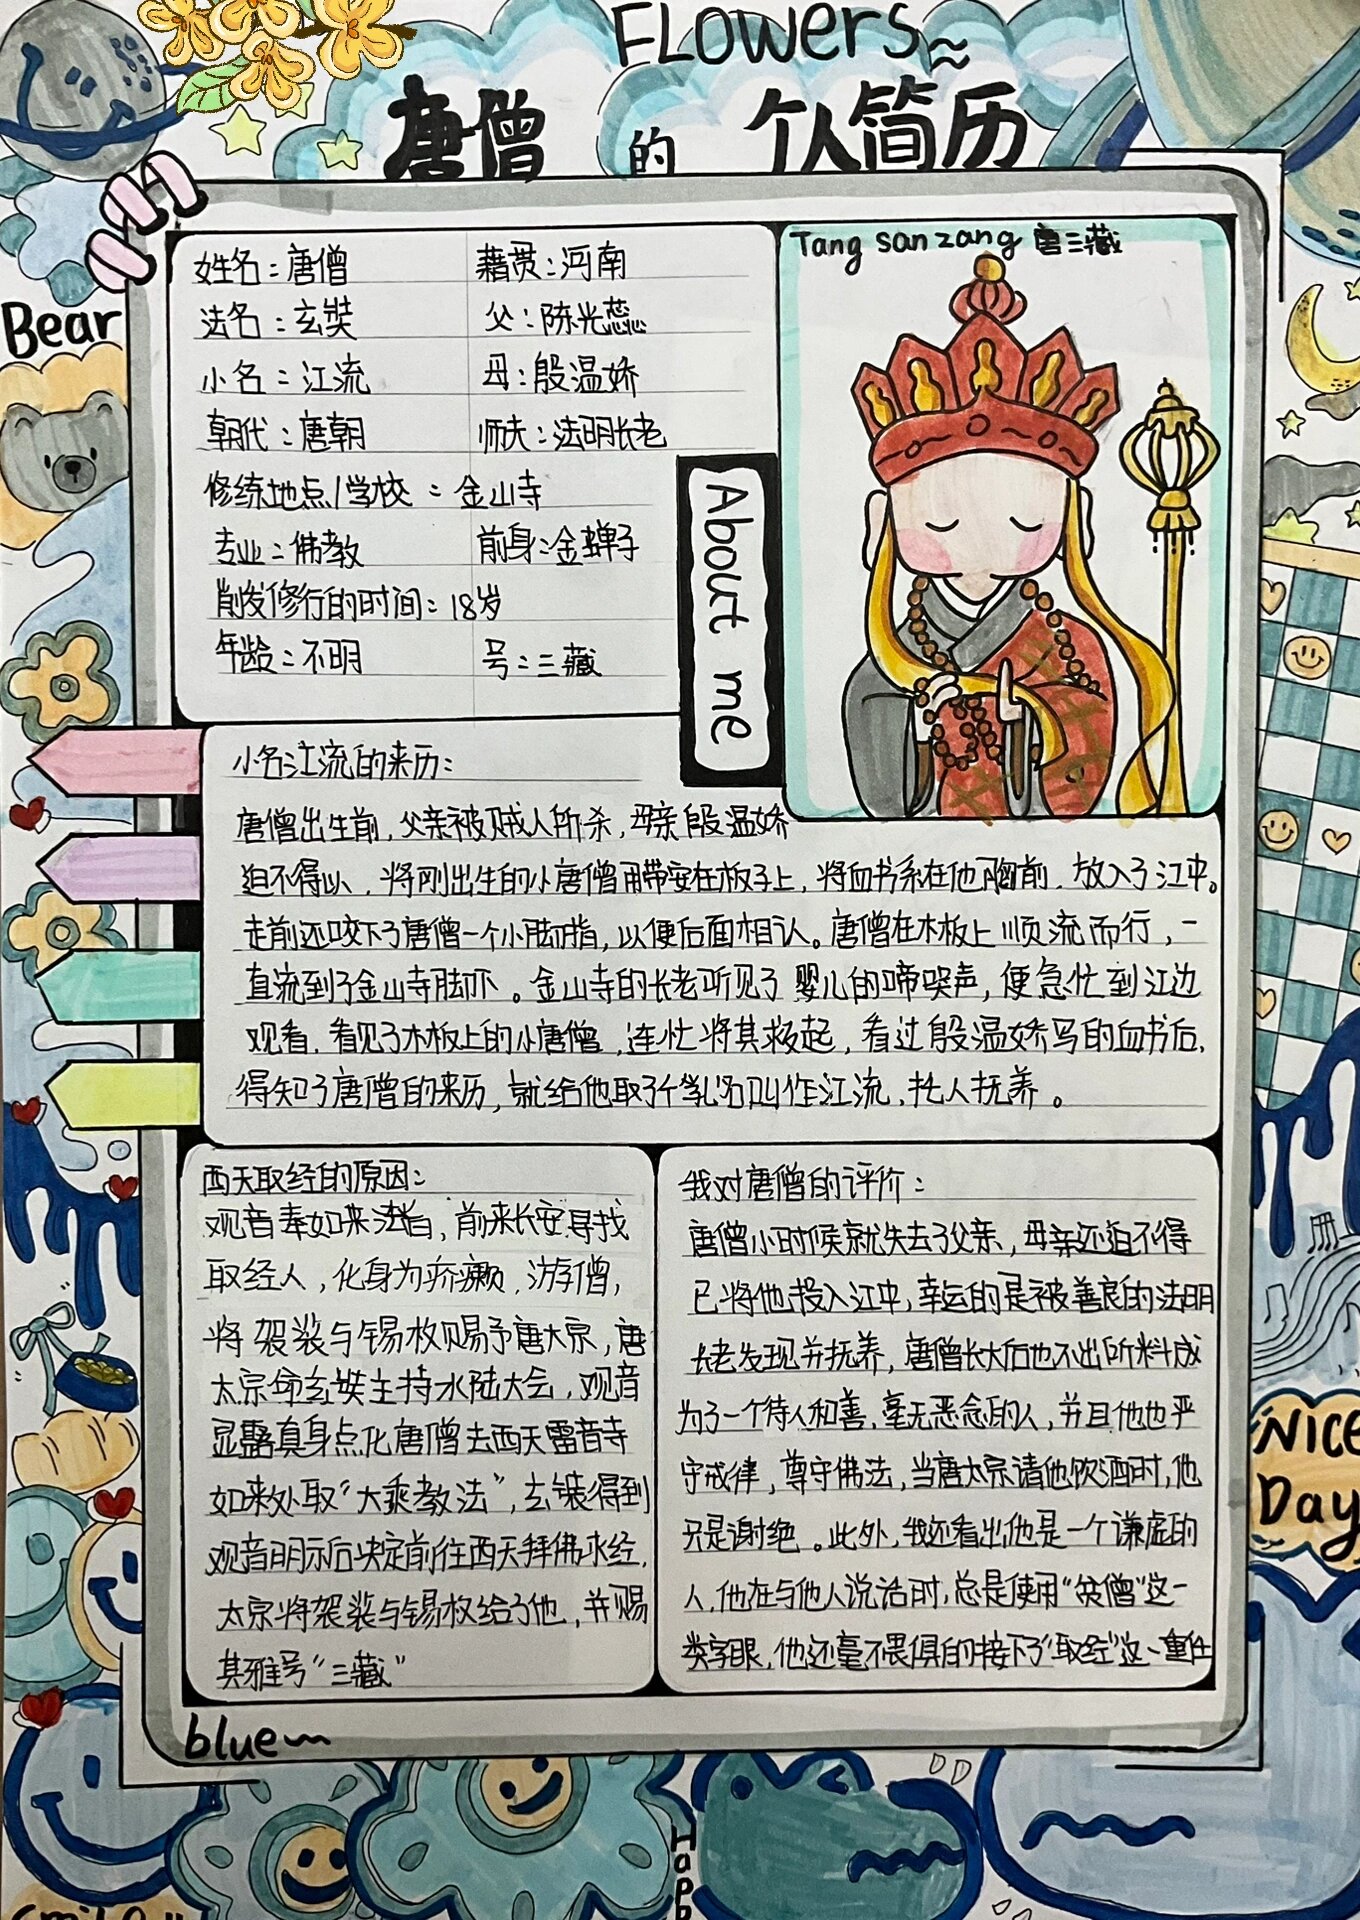 FLowers
唐僧的个人简历
Tang sanzang 唐三藏
Bear
姓名:唐僧 籍贯:河南
法名:玄奘 父:陈光蕊
小名:江流 母:殷温娇
朝代:唐朝 师夫:法明长老
修练地点/学校:金山寺
专业:佛教 前身:金蝉子
削发修行的时间:18岁
年龄:不明 号:三藏
About me
小名江流的来历:
唐僧出生前,父亲被贼人所杀,母亲殷温娇
迫不得以,将刚出生的小唐僧用带安在板子上,将血书系在他胸前,放入了江中。
走前还咬下了唐僧一个小脚指,以便后面相认。唐僧在木板上顺流而行,一
直流到了金山寺脚下。金山寺的长老听见了婴儿的啼哭声,便急忙到江边
观看,看见了木板上的小唐僧,连忙将其救起,看过殷温娇写的血书后,
得知了唐僧的来历,就给他取了个乳名叫作江流,托人抚养。
西天取经的原因:
观音奉如来法旨,前来长安寻找
取经人,化身为疥癞游僧,
将袈裟与锡杖赐予唐太宗,唐
太宗命玄奘主持水陆大会,观音
显露真身点化唐僧去西天雷音寺
如来处取“大乘教法”,玄装得到
观音明示后决定前往西天拜佛求经,
太宗将袈裟与锡杖给了他,并赐
其雅号“三藏”
我对唐僧的评价:
唐僧小时候就失去了父亲,母亲还迫不得
已将他投入江中,幸运的是被善良的法明
长老发现并抚养,唐僧长大后也不出所料成
为了一个待人和善,毫无恶念的人,并且他也严
守戒律,尊守佛法,当唐太宗请他饮酒时,他
只是谢绝。此外,我还看出他是一个谦虚的
人,他在与他人说话时,总是使用“贫僧”这一
类字眼,他还毫不畏惧的接下了“取经”这一重任
NICE
Day
blue
Hap